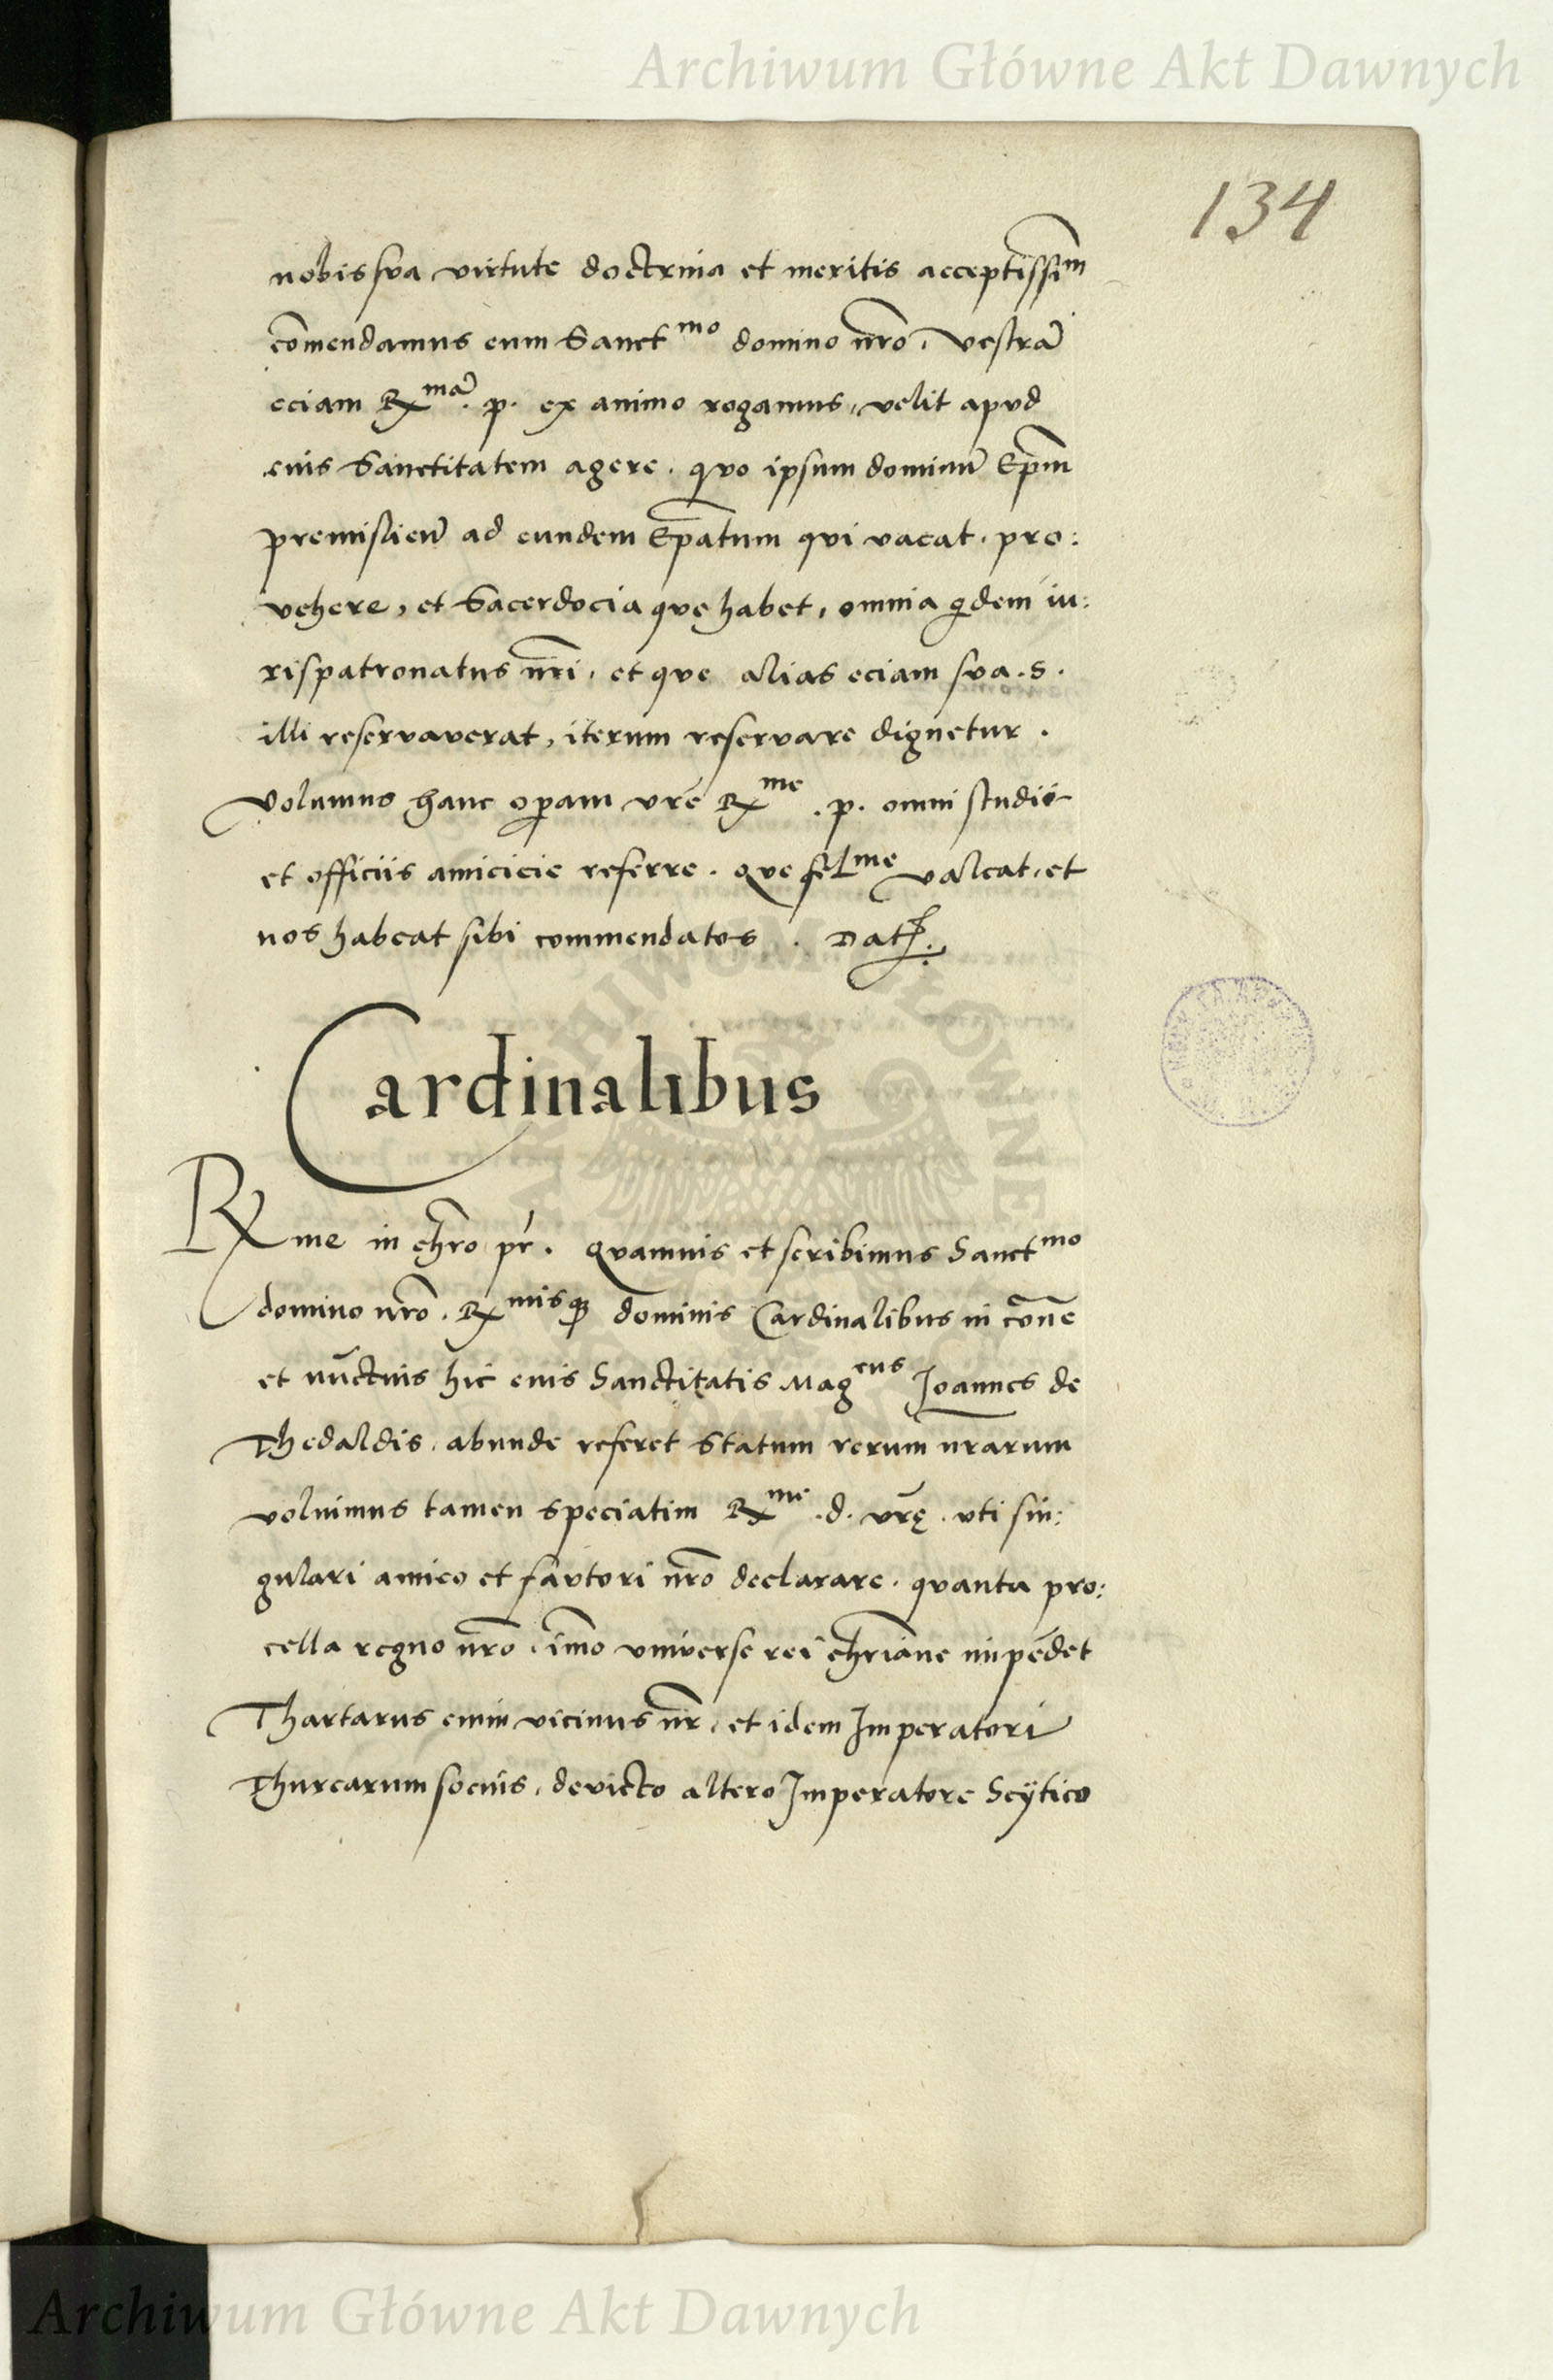 Archiwum Główne Akt Dawnych
134
nobis sva virtute doctrina et meritis acceptissim̄
com̄endamus eum Sanctmo domino nr̄o. Vestrā
eciam Rxmā. p. ex animo rogamus, velit apvd
eius Sanctitatem agere. qvo ipsum dominū Ep̄m
premislien̄ ad eundem Ep̄atum qvi vacat. pro:
vehere, et Sacerdocia qvę habet, omnia qdem iu:
rispatronatus nr̄i, et qve alias eciam sva. S.
illi reservaverat, iterum reservare dignetur.
Volumus hanc op̄am vr̄e Rxme. p. omni studio
et officiis amicicie referre. qve felme valeat, et
nos habeat sibi commendatos. Dat.
Cardinalibus
Rxme in chr̄o pr̄. Qvamvis et scribimus Sanctmo
domino nr̄o. Rxmisq dominis Cardinalibus in cōne
et nūctius hic eius Sanctitatis Magcus Joannes de
Thedaldis. abunde referet Statum rerum nr̄arum
voluimus tamen speciatim Rxme. d. vr̄ę. vti sin:
gulari amico et favtori nr̄o declarare. qvanta pro:
cella regno nr̄o. im̄o vniverse rei chr̄iane impēdet
Thartarus enim vicinus nr̄, et idem Imperatori
Thurcarum socius, devicto altero Imperatore Scÿtico
Archiwum Główne Akt Dawnych